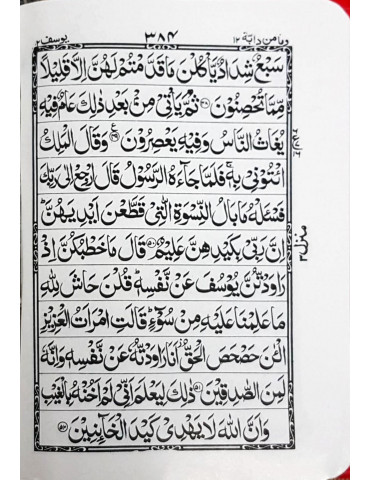 وما من دابة ١٢ ٣٨٤ يوسف ١٢
سَبْعٌ شِدَادٌ يَّاْكُلْنَ مَا قَدَّمْتُمْ لَهُنَّ اِلَّا قَلِيْلًا
مِّمَّا تُحْصِنُوْنَ ﴿٤٨﴾ ثُمَّ يَاْتِيْ مِنْۢ بَعْدِ ذٰلِكَ عَامٌ فِيْهِ
يُغَاثُ النَّاسُ وَفِيْهِ يَعْصِرُوْنَ ﴿٤٩﴾ وَقَالَ الْمَلِكُ
ائْتُوْنِيْ بِهٖ ۚ فَلَمَّا جَآءَهُ الرَّسُوْلُ قَالَ ارْجِعْ اِلٰى رَبِّكَ
فَسْـَٔلْهُ مَا بَالُ النِّسْوَةِ الّٰتِيْ قَطَّعْنَ اَيْدِيَهُنَّ ؕ
اِنَّ رَبِّيْ بِكَيْدِهِنَّ عَلِيْمٌ ﴿٥٠﴾ قَالَ مَا خَطْبُكُنَّ اِذْ
رَاوَدْتُّنَّ يُوْسُفَ عَنْ نَّفْسِهٖ ؕ قُلْنَ حَاشَ لِلّٰهِ
مَا عَلِمْنَا عَلَيْهِ مِنْ سُوْٓءٍ ؕ قَالَتِ امْرَاَتُ الْعَزِيْزِ
الْـٰٔنَ حَصْحَصَ الْحَقُّ اَنَا رَاوَدْتُّهٗ عَنْ نَّفْسِهٖ وَاِنَّهٗ
لَمِنَ الصّٰدِقِيْنَ ﴿٥١﴾ ذٰلِكَ لِيَعْلَمَ اَنِّيْ لَمْ اَخُنْهُ بِالْغَيْبِ
وَاَنَّ اللّٰهَ لَا يَهْدِيْ كَيْدَ الْخَآئِنِيْنَ ﴿٥٢﴾
منزل ٣